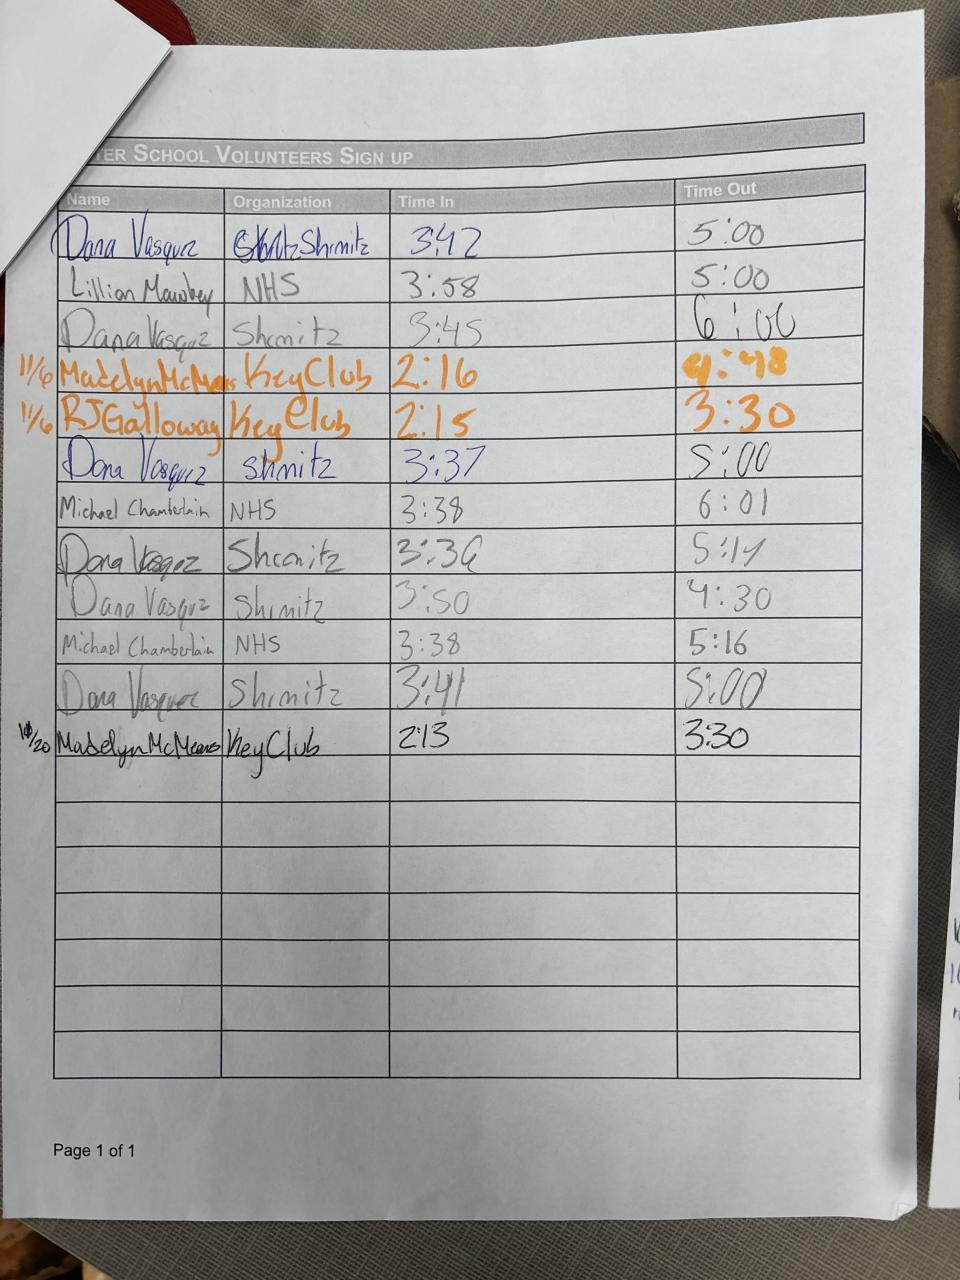 TER SCHOOL VOLUNTEERS SIGN UP
Name Organization Time In Time Out
Dana Vasquez Shmitz 3:42 5:00
Lillian Mawbey NHS 3:58 5:00
Dana Vasquz Shmitz 3:45 6:00
11/6 Madelyn McMeans Key Club 2:16 4:48
11/6 RJ Galloway Key Club 2:15 3:30
Dana Vasquez Shmitz 3:37 5:00
Michael Chamberlain NHS 3:38 6:01
Dana Vasquez Shmitz 3:36 5:14
Dana Vasquz Shmitz 3:50 4:30
Michael Chamberlain NHS 3:38 5:16
Dana Vasquez Shmitz 3:41 5:00
10/20 Madelyn McMeans Key Club 2:13 3:30
Page 1 of 1